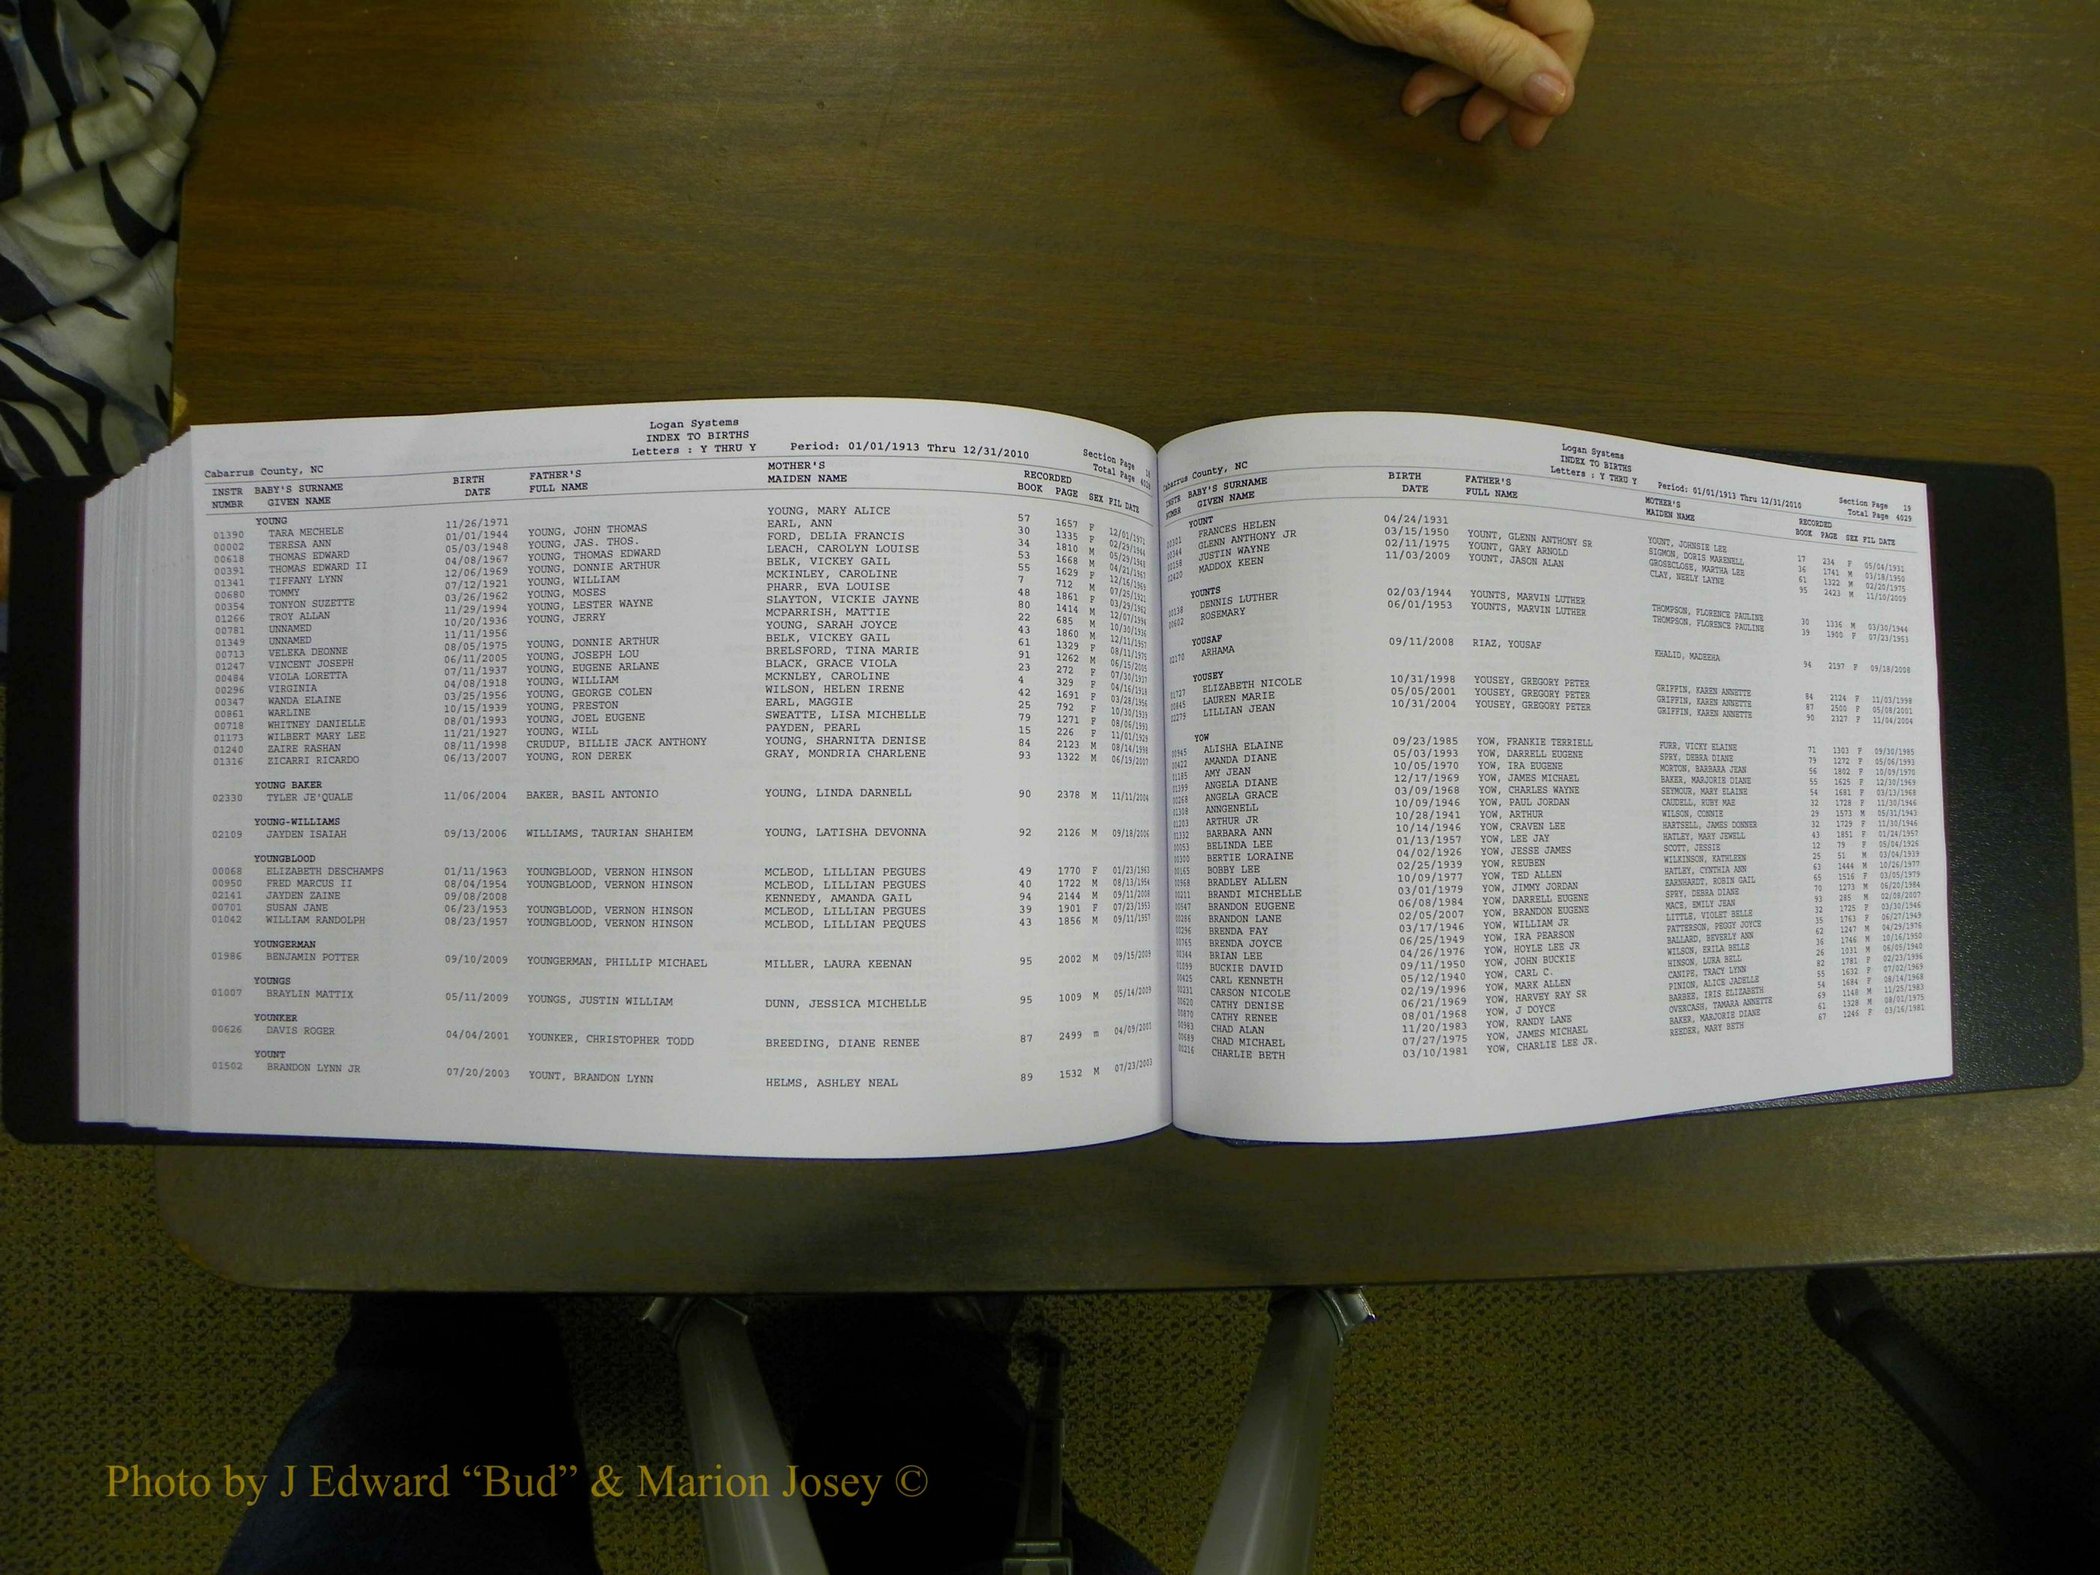 Logan Systems
INDEX TO BIRTHS
Letters : Y THRU Y Period: 01/01/1913 Thru 12/31/2010
Cabarrus County, NC Section Page 18
Total Page 4028
INSTR BABY'S SURNAME BIRTH FATHER'S MOTHER'S RECORDED
NUMBR GIVEN NAME DATE FULL NAME MAIDEN NAME BOOK PAGE SEX FIL DATE
YOUNG
01390 TARA MECHELE 11/26/1971 YOUNG, MARY ALICE 57 1657 F 12/01/1971
00002 TERESA ANN 01/01/1944 YOUNG, JOHN THOMAS EARL, ANN 30 1335 F 02/29/1944
00618 THOMAS EDWARD 05/03/1948 YOUNG, JAS. THOS. FORD, DELIA FRANCIS 34 1810 M 05/29/1948
00391 THOMAS EDWARD II 04/08/1967 YOUNG, THOMAS EDWARD LEACH, CAROLYN LOUISE 53 1668 M 04/21/1967
01341 TIFFANY LYNN 12/06/1969 YOUNG, DONNIE ARTHUR BELK, VICKEY GAIL 55 1629 F 12/16/1969
00680 TOMMY 07/12/1921 YOUNG, WILLIAM MCKINLEY, CAROLINE 7 712 M 07/25/1921
00354 TONYON SUZETTE 03/26/1962 YOUNG, MOSES PHARR, EVA LOUISE 48 1861 F 03/29/1962
01266 TROY ALLAN 11/29/1994 YOUNG, LESTER WAYNE SLAYTON, VICKIE JAYNE 80 1414 M 12/07/1994
00781 UNNAMED 10/20/1936 YOUNG, JERRY MCPARRISH, MATTIE 22 685 M 10/30/1936
01349 UNNAMED 11/11/1956 YOUNG, SARAH JOYCE 43 1860 M 12/11/1957
00713 VELEKA DEONNE 08/05/1975 YOUNG, DONNIE ARTHUR BELK, VICKEY GAIL 61 1329 F 08/11/1975
01247 VINCENT JOSEPH 06/11/2005 YOUNG, JOSEPH LOU BRELSFORD, TINA MARIE 91 1262 M 06/15/2005
00484 VIOLA LORETTA 07/11/1937 YOUNG, EUGENE ARLANE BLACK, GRACE VIOLA 23 272 F 07/30/1937
00296 VIRGINIA 04/08/1918 YOUNG, WILLIAM MCKNLEY, CAROLINE 4 329 F 04/16/1918
00347 WANDA ELAINE 03/25/1956 YOUNG, GEORGE COLEN WILSON, HELEN IRENE 42 1691 F 03/28/1956
00861 WARLINE 10/15/1939 YOUNG, PRESTON EARL, MAGGIE 25 792 F 10/30/1939
00718 WHITNEY DANIELLE 08/01/1993 YOUNG, JOEL EUGENE SWEATTE, LISA MICHELLE 79 1271 F 08/06/1993
01173 WILBERT MARY LEE 11/21/1927 YOUNG, WILL PAYDEN, PEARL 15 226 F 11/01/1929
01240 ZAIRE RASHAN 08/11/1998 CRUDUP, BILLIE JACK ANTHONY YOUNG, SHARNITA DENISE 84 2123 M 08/14/1998
01316 ZICARRI RICARDO 06/13/2007 YOUNG, RON DEREK GRAY, MONDRIA CHARLENE 93 1322 M 06/19/2007
YOUNG BAKER
02330 TYLER JE'QUALE 11/06/2004 BAKER, BASIL ANTONIO YOUNG, LINDA DARNELL 90 2378 M 11/11/2004
YOUNG-WILLIAMS
02109 JAYDEN ISAIAH 09/13/2006 WILLIAMS, TAURIAN SHAHIEM YOUNG, LATISHA DEVONNA 92 2126 M 09/18/2006
YOUNGBLOOD
00068 ELIZABETH DESCHAMPS 01/11/1963 YOUNGBLOOD, VERNON HINSON MCLEOD, LILLIAN PEGUES 49 1770 F 01/23/1963
00950 FRED MARCUS II 08/04/1954 YOUNGBLOOD, VERNON HINSON MCLEOD, LILLIAN PEGUES 40 1722 M 08/13/1954
02141 JAYDEN ZAINE 09/08/2008 KENNEDY, AMANDA GAIL 94 2144 M 09/11/2008
00701 SUSAN JANE 06/23/1953 YOUNGBLOOD, VERNON HINSON MCLEOD, LILLIAN PEGUES 39 1901 F 07/23/1953
01042 WILLIAM RANDOLPH 08/23/1957 YOUNGBLOOD, VERNON HINSON MCLEOD, LILLIAN PEQUES 43 1856 M 09/11/1957
YOUNGERMAN
01986 BENJAMIN POTTER 09/10/2009 YOUNGERMAN, PHILLIP MICHAEL MILLER, LAURA KEENAN 95 2002 M 09/15/2009
YOUNGS
01007 BRAYLIN MATTIX 05/11/2009 YOUNGS, JUSTIN WILLIAM DUNN, JESSICA MICHELLE 95 1009 M 05/14/2009
YOUNKER
00626 DAVIS ROGER 04/04/2001 YOUNKER, CHRISTOPHER TODD BREEDING, DIANE RENEE 87 2499 m 04/09/2001
YOUNT
01502 BRANDON LYNN JR 07/20/2003 YOUNT, BRANDON LYNN HELMS, ASHLEY NEAL 89 1532 M 07/23/2003
Logan Systems
INDEX TO BIRTHS
Letters : Y THRU Y Period: 01/01/1913 Thru 12/31/2010
Cabarrus County, NC Section Page 19
Total Page 4029
INSTR BABY'S SURNAME BIRTH FATHER'S MOTHER'S RECORDED
NUMBR GIVEN NAME DATE FULL NAME MAIDEN NAME BOOK PAGE SEX FIL DATE
YOUNT
00301 FRANCES HELEN 04/24/1931 YOUNT, JOHNSIE LEE 17 234 F 05/04/1931
00344 GLENN ANTHONY JR 03/15/1950 YOUNT, GLENN ANTHONY SR SIGMON, DORIS MARENELL 36 1741 M 03/18/1950
00158 JUSTIN WAYNE 02/11/1975 YOUNT, GARY ARNOLD GROSECLOSE, MARTHA LEE 61 1322 M 02/20/1975
02420 MADDOX KEEN 11/03/2009 YOUNT, JASON ALAN CLAY, NEELY LAYNE 95 2423 M 11/10/2009
YOUNTS
00138 DENNIS LUTHER 02/03/1944 YOUNTS, MARVIN LUTHER THOMPSON, FLORENCE PAULINE 30 1336 M 03/30/1944
00602 ROSEMARY 06/01/1953 YOUNTS, MARVIN LUTHER THOMPSON, FLORENCE PAULINE 39 1900 F 07/23/1953
YOUSAF
02170 ARHAMA 09/11/2008 RIAZ, YOUSAF KHALID, MADEEHA 94 2197 F 09/18/2008
YOUSEY
01727 ELIZABETH NICOLE 10/31/1998 YOUSEY, GREGORY PETER GRIFFIN, KAREN ANNETTE 84 2124 F 11/03/1998
00845 LAUREN MARIE 05/05/2001 YOUSEY, GREGORY PETER GRIFFIN, KAREN ANNETTE 87 2500 F 05/08/2001
02279 LILLIAN JEAN 10/31/2004 YOUSEY, GREGORY PETER GRIFFIN, KAREN ANNETTE 90 2327 F 11/04/2004
YOW
00945 ALISHA ELAINE 09/23/1985 YOW, FRANKIE TERRIELL FURR, VICKY ELAINE 71 1303 F 09/30/1985
00422 AMANDA DIANE 05/03/1993 YOW, DARRELL EUGENE SPRY, DEBRA DIANE 79 1272 F 05/06/1993
01185 AMY JEAN 10/05/1970 YOW, IRA EUGENE MORTON, BARBARA JEAN 56 1802 F 10/09/1970
01399 ANGELA DIANE 12/17/1969 YOW, JAMES MICHAEL BAKER, MARJORIE DIANE 55 1625 F 12/30/1969
00268 ANGELA GRACE 03/09/1968 YOW, CHARLES WAYNE SEYMOUR, MARY ELAINE 54 1681 F 03/13/1968
01308 ANNGENELL 10/09/1946 YOW, PAUL JORDAN CAUDELL, RUBY MAE 32 1728 F 11/30/1946
01203 ARTHUR JR 10/28/1941 YOW, ARTHUR WILSON, CONNIE 29 1573 M 05/31/1943
01332 BARBARA ANN 10/14/1946 YOW, CRAVEN LEE HARTSELL, JAMES DONNER 32 1729 F 11/30/1946
00053 BELINDA LEE 01/13/1957 YOW, LEE JAY HATLEY, MARY JEWELL 43 1851 F 01/24/1957
00300 BERTIE LORAINE 04/02/1926 YOW, JESSE JAMES SCOTT, JESSIE 12 79 F 05/04/1926
00165 BOBBY LEE 02/25/1939 YOW, REUBEN WILKINSON, KATHLEEN 25 51 M 03/04/1939
00968 BRADLEY ALLEN 10/09/1977 YOW, TED ALLEN HATLEY, CYNTHIA ANN 63 1444 M 10/26/1977
00211 BRANDI MICHELLE 03/01/1979 YOW, JIMMY JORDAN EARNHARDT, ROBIN GAIL 65 1516 F 03/05/1979
00547 BRANDON EUGENE 06/08/1984 YOW, DARRELL EUGENE SPRY, DEBRA DIANE 70 1273 M 06/20/1984
00286 BRANDON LANE 02/05/2007 YOW, BRANDON EUGENE MACE, EMILY JEAN 93 285 M 02/08/2007
00296 BRENDA FAY 03/17/1946 YOW, WILLIAM JR LITTLE, VIOLET BELLE 32 1725 F 03/30/1946
00765 BRENDA JOYCE 06/25/1949 YOW, IRA PEARSON PATTERSON, PEGGY JOYCE 35 1763 F 06/27/1949
00344 BRIAN LEE 04/26/1976 YOW, HOYLE LEE JR BALLARD, BEVERLY ANN 62 1247 M 04/29/1976
01099 BUCKIE DAVID 09/11/1950 YOW, JOHN BUCKIE WILSON, ERILA BELLE 36 1746 M 10/16/1950
00425 CARL KENNETH 05/12/1940 YOW, CARL C. HINSON, LURA BELL 26 1031 M 06/05/1940
00231 CARSON NICOLE 02/19/1996 YOW, MARK ALLEN CANIPE, TRACY LYNN 82 1781 F 02/23/1996
00620 CATHY DENISE 06/21/1969 YOW, HARVEY RAY SR PINION, ALICE JADELLE 55 1632 F 07/02/1969
00870 CATHY RENEE 08/01/1968 YOW, J DOYCE BARBEE, IRIS ELIZABETH 54 1684 F 08/14/1968
00983 CHAD ALAN 11/20/1983 YOW, RANDY LANE OVERCASH, TAMARA ANNETTE 69 1148 M 11/25/1983
00689 CHAD MICHAEL 07/27/1975 YOW, JAMES MICHAEL BAKER, MARJORIE DIANE 61 1328 M 08/01/1975
00216 CHARLIE BETH 03/10/1981 YOW, CHARLIE LEE JR. REEDER, MARY BETH 67 1246 F 03/16/1981
Photo by J Edward “Bud” & Marion Josey ©